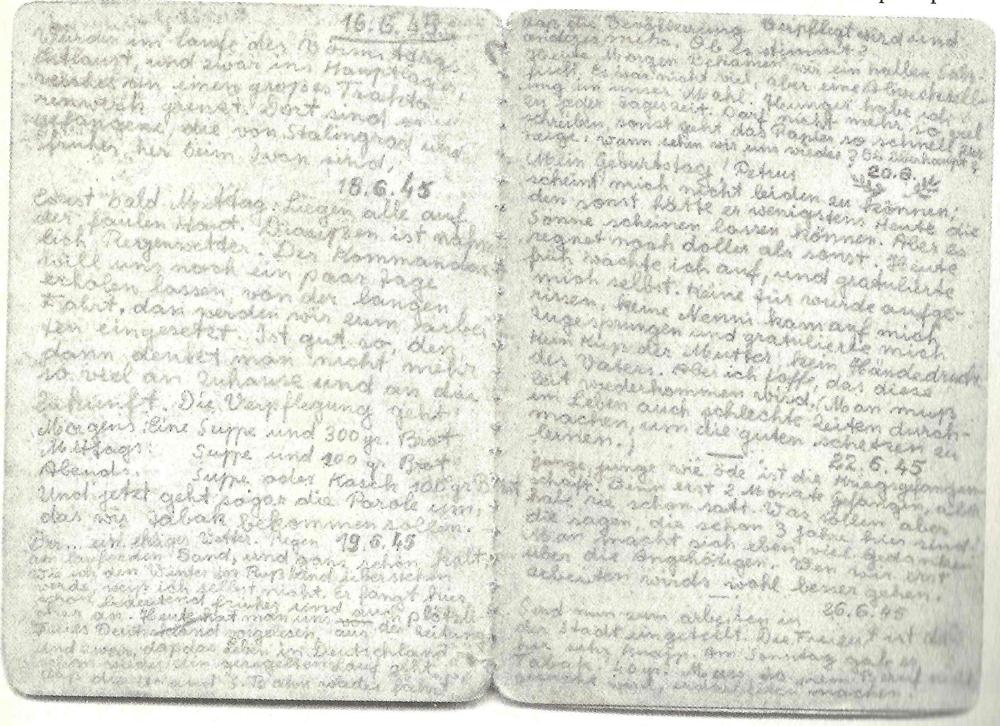 16.6.45
Wurden im laufe des Vormittags
entlaust, und zwar ins Hauptlager,
welches an einen großes Trakto-
renwerk grenst. Dort sind
gefangene, die von Stalingrad und
früher her beim Iwan sind,
18.6.45
Es ist bald Mittag. Liegen alle auf
der faulen Haut. Draußen ist
lich Regenwetter. Der Kommandant
will uns noch ein paar Tage
erholen lassen, von der langen
Fahrt, dan werden wir zum
ten eingesetzt. Ist gut so, den
dann denket man nicht mehr
so viel an Zuhause und an die
Zukunft. Die Verpflegung geht.
Morgens: Eine Suppe und 300 gr. Brot
Mittags: Suppe und 200 gr. Brot
Abends: Suppe oder Kasch 100 gr Brot
Und jetzt geht sogar die Parole um,
das wir Tabak bekommen sollen.
ein ekliges Wetter. Regen 19.6.45
am laufenden Band, und ganz schön kalt.
Wie ich den Winter in Rußland überstehen
werde, weiß ich selbst nicht. Er fängt hier
schon bedeutend früher und auch plötzli-
cher an. Heute hat man uns aus der Zeitung
Freies Deutschland vorgelesen,
und zwar, daß das Leben in Deutschland
schon wieder ein geregelten Lauf geht
daß die und S-Bahn wieder fährt
daß die Bevölkerung verpflegt wird und
anderes mehr. Ob es stimmt?
Heute Morgen bekamen wir ein halben
fisch. Es war nicht viel, aber eine Abwechsell-
ung in unser Mahl. Hunger habe ich
zu jeder Tageszeit. Darf nicht mehr so viel
schreiben sonst geht das Papier so schnell zur
neige. Wann sehen wir uns wieder? Ob überhaupt?
Mein Geburtstage! Petrus 20.6.
scheint mich nicht leiden zu können,
den sonst hätte er wenigstens Heute die
Sonne scheinen lassen können. Aber es
regnet noch doller als sonst. Heute
früh wachte ich auf, und gratulierte
mich selbst. Keine Tür wurde aufge-
rissen, keine Nenni kam auf mich
zugesprungen und gratulierte mich
Kein Kuß der Mutter, kein Händedruck
des Vaters. Aber ich hoffe, das diese
Zeit wiederkommen wird. (Man muß
im Leben auch schlechte Zeiten durch-
machen, um die guten schetzen zu
lernen.)
22.6.45
Junge, junge wie öde ist die Kriegsgefangen
schaft. Bin erst 2 Monate gefangen,
habe sie schon satt. Was sollen aber
die sagen, die schon 3 Jahre hier sind.
Man macht sich eben viel Gedanken
über die Angehörigen. Wen wir erst
arbeiten wirds wohl besser gehen.
26.6.45
Sind nun zum arbeiten in
der Stadt eingeteilt. Die Freizeit ist
sehr knapp. Am Sonntag gab es
Tabak. 40 gr.
machen.